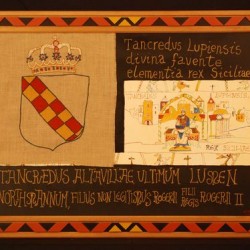 Tancredus Lupiensis
divina favente
clementia rex Siciliae
REX SICILIAE
TANCRÆDUS ALTAVILLAE ULTIMUM LUPÆN
NORTHMANNUM, FILIUS NON LEGITIMUS ROGERII FILII REGIS ROGERII II